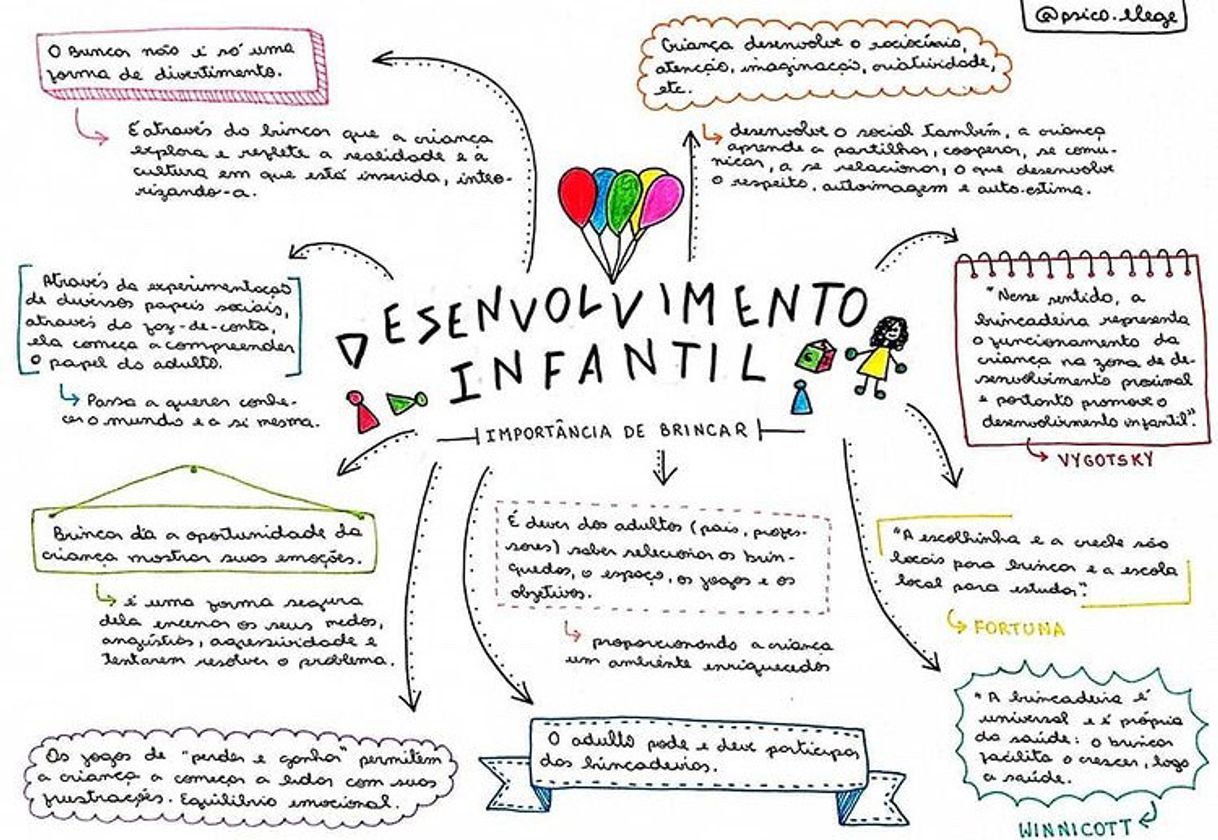 @psico.elege
O Brincar não é só uma
forma de divertimento.
É através do brincar que a criança
explora e reflete a realidade e a
cultura em que está inserida, inteo-
rizando-a.
Criança desenvolve o raciocínio,
atenção, imaginação, criatividade,
etc.
desenvolve o social também, a criança
aprende a partilhar, cooperar, se comu-
nicar, a se relacionar, o que desenvolve
o respeito, autoimagem e auto-estima.
Através da experimentação
de diversos papeis sociais,
através do faz-de-conta,
ela começa a compreender
o papel do adulto.
Passa a querer conhe-
cer o mundo e a si mesma.
DESENVOLVIMENTO
INFANTIL
IMPORTÂNCIA DE BRINCAR
"Nesse sentido, a
brincadeira representa
o funcionamento da
criança na zona de de-
senvolvimento proximal
e portanto promove o
desenvolvimento infantil".
VYGOTSKY
Brincar dá a oportunidade da
criança mostrar suas emoções.
é uma forma segura
dela encenar os seus medos,
angústias, agressividade e
tentarem resolver o problema.
É dever dos adultos (pais, profes-
sores) saber selecionar os brin-
quedos, o espaço, os jogos e os
objetivos.
proporcionando a criança
um ambiente enriquecedor
"A escolhinha e a creche são
locais para brincar e a escola
local para estudar".
FORTUNA
Os jogos de "perder e ganhar" permitem
a criança a começar a lidar com suas
frustrações. Equilíbrio emocional.
O adulto pode e deve participar
das brincadeiras.
"A brincadeira é
universal e é própria
da saúde: o brincar
facilita o crescer, logo
a saúde.
WINNICOTT